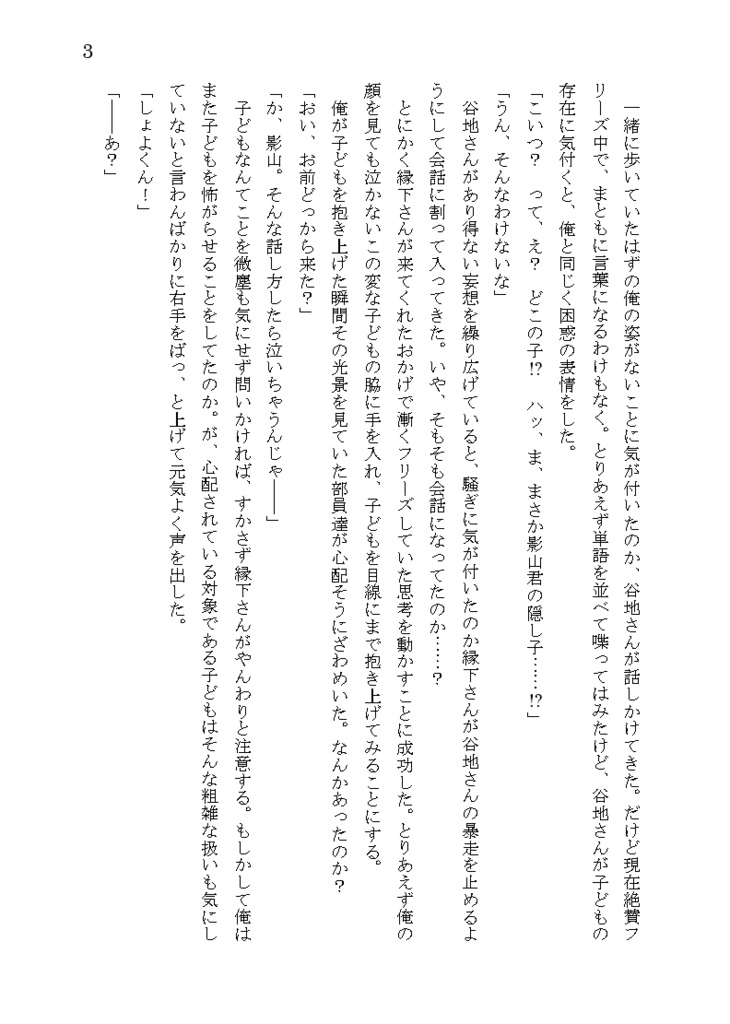 3
　一緒に歩いていたはずの俺の姿がないことに気が付いたのか、谷地さんが話しかけてきた。だけど現在絶賛フ
リーズ中で、まともに言葉になるわけもなく。とりあえず単語を並べて喋ってはみたけど、谷地さんが子どもの
存在に気付くと、俺と同じく困惑の表情をした。
「こいつ？　って、え？　どこの子!?　ハッ、ま、まさか影山君の隠し子……!?」
「うん、そんなわけないな」
　谷地さんがあり得ない妄想を繰り広げていると、騒ぎに気が付いたのか縁下さんが谷地さんの暴走を止めるよ
うにして会話に割って入ってきた。いや、そもそも会話になってたのか……？
　とにかく縁下さんが来てくれたおかげで漸くフリーズしていた思考を動かすことに成功した。とりあえず俺の
顔を見ても泣かないこの変な子どもの脇に手を入れ、子どもを目線にまで抱き上げてみることにする。
　俺が子どもを抱き上げた瞬間その光景を見ていた部員達が心配そうにざわめいた。なんかあったのか？
「おい、お前どっから来た？」
「か、影山。そんな話し方したら泣いちゃうんじゃ――」
　子どもなんてことを微塵も気にせず問いかければ、すかさず縁下さんがやんわりと注意する。もしかして俺は
また子どもを怖がらせることをしてたのか。が、心配されている対象である子どもはそんな粗雑な扱いも気にし
ていないと言わんばかりに右手をばっ、と上げて元気よく声を出した。
「しょよくん！」
「――あ？」